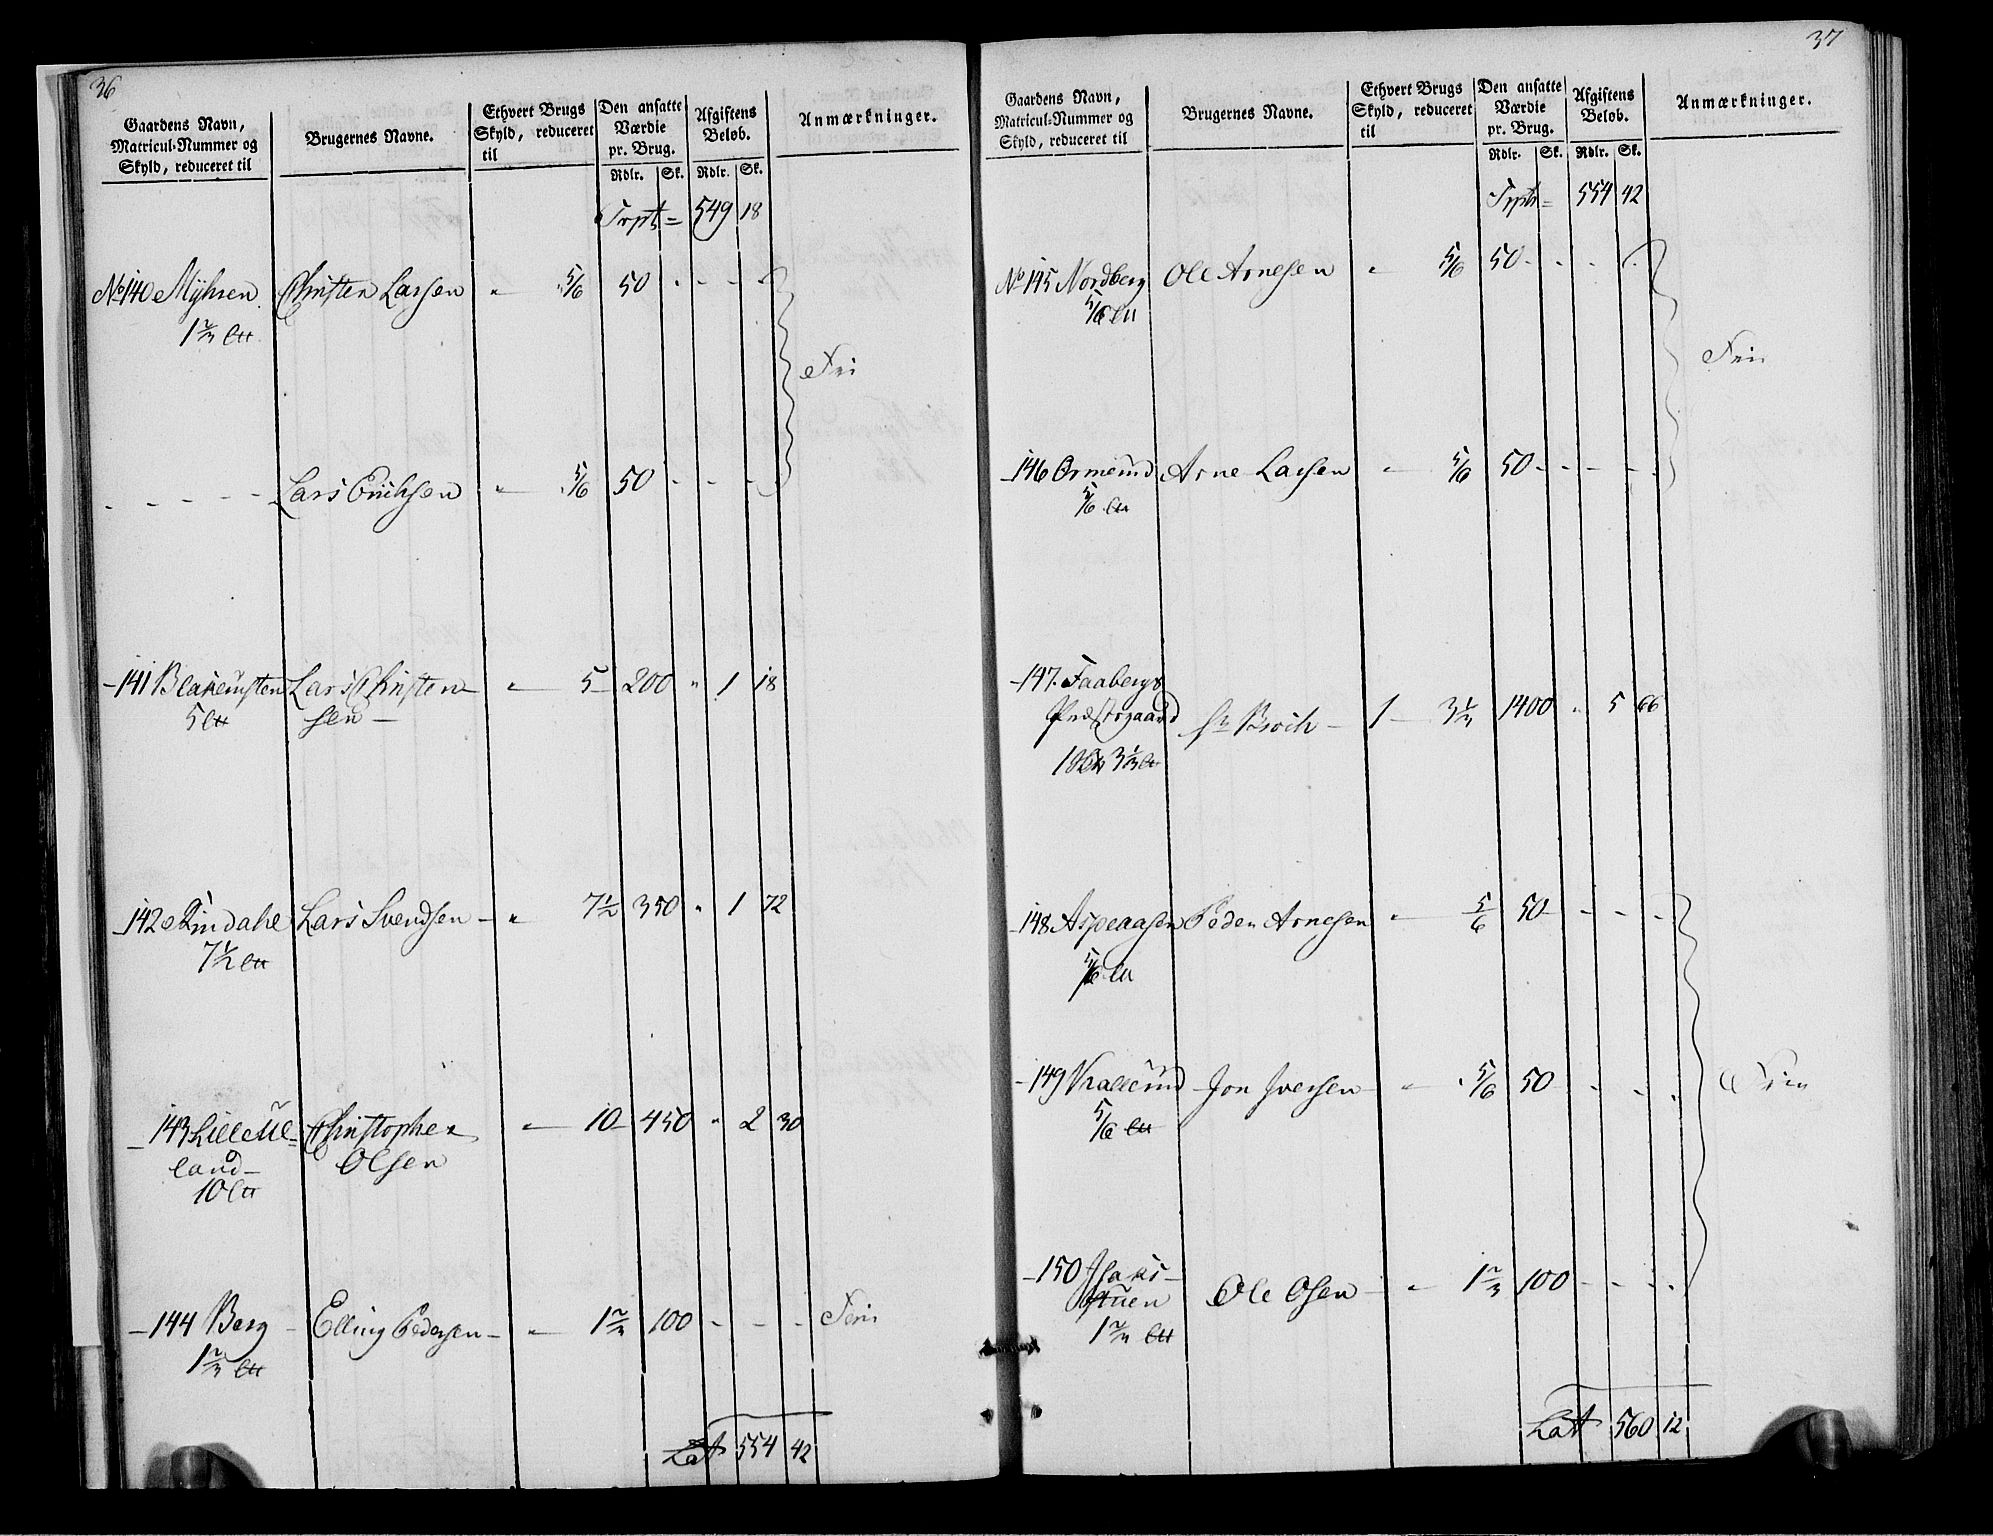 36
Gaardens Navn, Matricul-Nummer og Skyld, reduceret til | Brugernes Navne. | Ethvert Brugs Skyld, reduceret til | Den ansatte Værdie pr. Brug. | Afgiftens Beløb. | Anmærkninger.
Rdlr. | Sk. | Rdlr. | Sk.
Trpt = 549 18
No 140 Myhren Christen Larsen " 5/6 50 - - -
1 2/3 Fri
- - - - Lars Erichsen " 5/6 50 - - -
- 141 Lars Christen- " 5 200 " 1 18
5 sen -
- 142 Rindahl Lars Svendsen - " 7 1/2 350 " 1 72
7 1/2
- 143 Lille Ul- Christopher " 10 450 " 2 30
land - Olsen
10
- 144 Berg - Elling Pedersen - " 1 2/3 100 - - - Fri
1 2/3
Lat 554 42
37
Gaardens Navn, Matricul-Nummer og Skyld, reduceret til | Brugernes Navne. | Ethvert Brugs Skyld, reduceret til | Den ansatte Værdie pr. Brug. | Afgiftens Beløb. | Anmærkninger.
Rdlr. | Sk. | Rdlr. | Sk.
Trpt = 554 42
No 145 Nordberg Ole Arnesen " 5/6 50 - - -
5/6 Fri
- 146 Ormerud Arne Larsen " 5/6 50 - - - -
5/6
- 147. Faabergs
Præstegaard Hr Broch - 1 - 3 1/3 1400 " 5 66
1 3 1/3
- 148 Aspeaasen Peder Arnesen " 5/6 50 - - - -
5/6
- 149 Kallerud Jon Iversen " 5/6 50 - - - - Fri
5/6
- 150 Isaks-
stuen Ole Olsen - " 1 2/3 100 - - - -
1 2/3
Lat 560 12